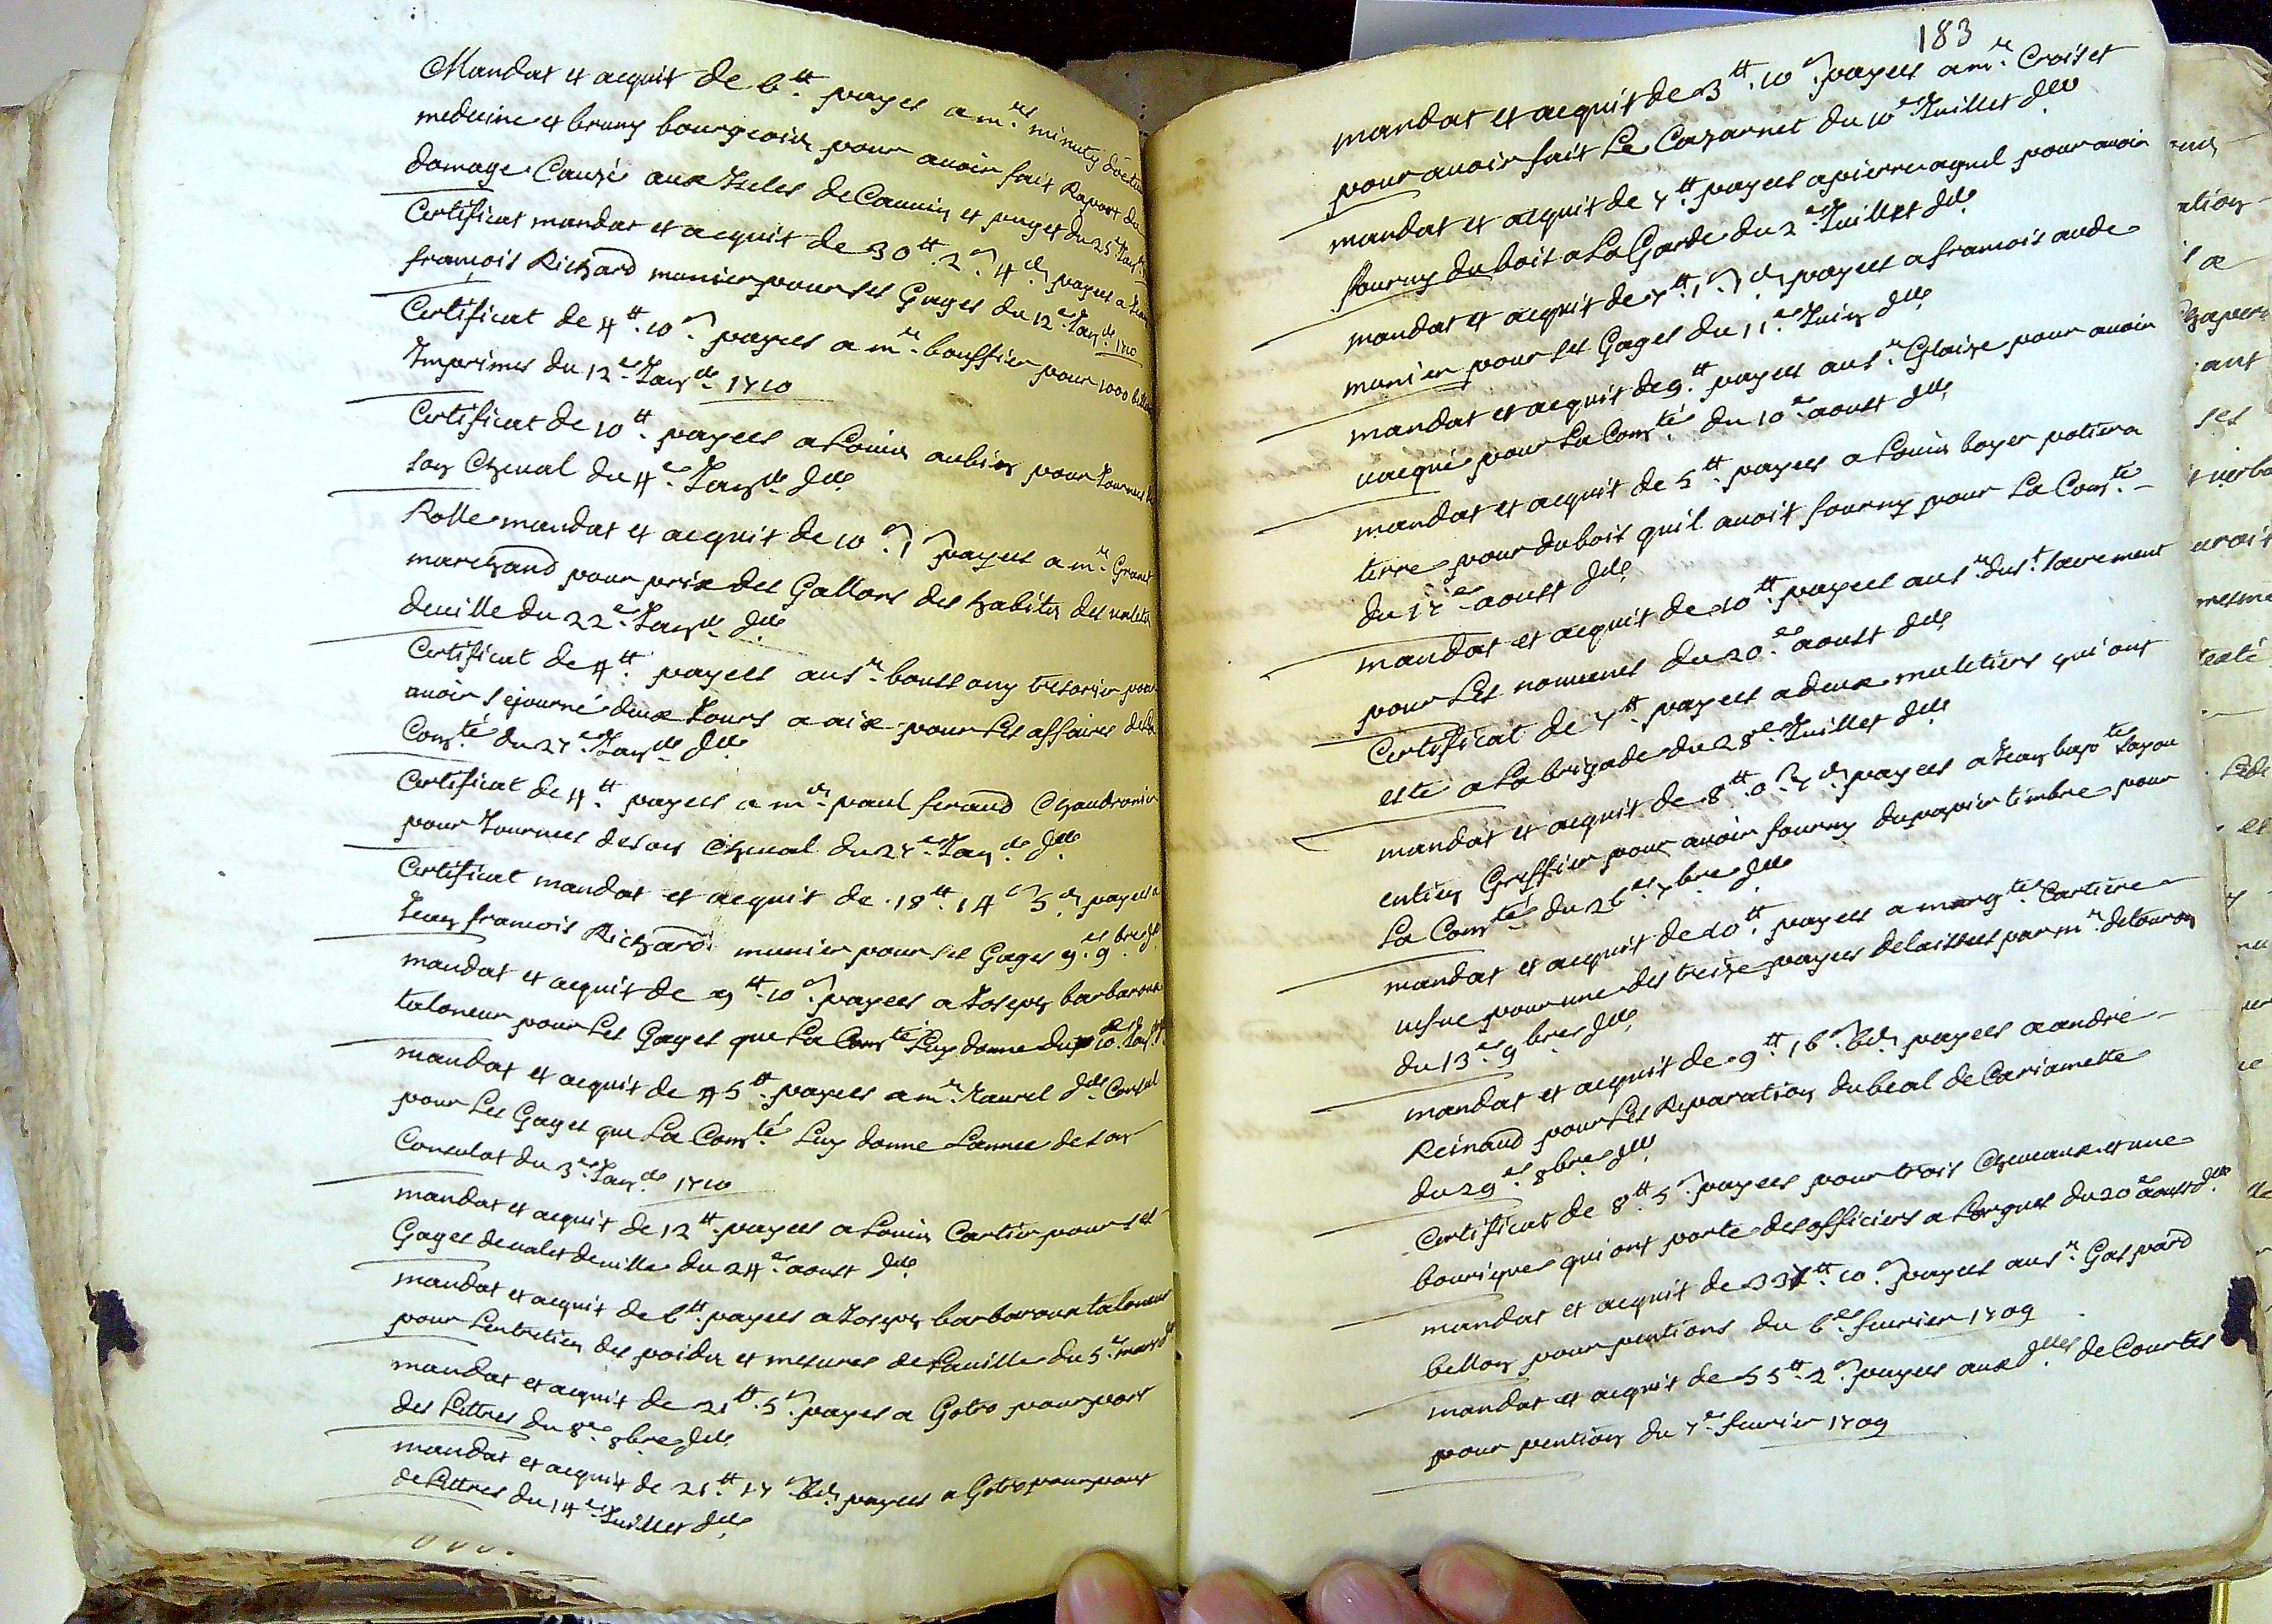 Mandat et acquit de 6.tt payes a m.rs minuty docteur
medecine et bruny bourgeois pour avoir fait Raport du
domage Cauzé aux Iscles de Cannin et puget du 25e
Certificat mandat et acquit de 30tt. 2s. 4d payes a
françois Richard munier pour ses Gages du 12e Janv.de 1710
Certificat de 4tt. 10s payes a m.r bouffier pour 1000
Imprimes du 12e Janv.de 1710
Certificat de 10tt. payees a Louis aubin pour Journees
son Cheval du 4e Janv.de d.te
Rolle mandat et acquit de 10s. 1 payes a m.r Granet
marchand pour prix des Gallons des habits des valets
deville du 22e Janv.de d.te
Certificat de 4tt. payees au s.r boussony tresorier pour
avoir sejourné deux Jours a aix pour les affaires de la
Com.té du 27e Janv.de d.te
Certificat de 4tt. payees a m.e paul feraud Chaudronier
pour Journees de son Cheval du 27e Janv.de d.te
Certificat mandat et acquit de 18tt. 14s 5d payes a
Jean francois Richard munier pour ses Gages 9e 9.bre d.te
mandat et acquit de 9tt. 10s payees a Joseph barbaroux
taloneur pour les Gages que la Com.té luy donne du 10
mandat et acquit de 45tt. payees a m.r Maurel d.te Consul
pour les Gages que La Com.té Luy donne Lannee de son
Consulat du 3e Janv.de 1710
mandat et acquit de 12tt. payees a Louis Cartier pour ses
Gages de valet deville du 24e aoust d.te
mandat et acquit de 6tt. payees a Joseph barbaroux taloneur
pour Lentretien des poids et mesures de Laville du 5e mars
mandat et acquit de 21tt. 5s. payes a Gotro pour port
des Lettres du 8e 8bre d.te
mandat et acquit de 21tt. 17s 6d payees a Gotro pour port
de Lettres du 14e Juillet d.te
183
mandat et acquit de 3tt. 10s. payees a m.r Croiset
pour avoir fait Le Cazarnet du 10e Juillet d.te
mandat et acquit de 7tt. payees a pierre agnel pour avoir
fourny du bois a La Garde du 2e Juillet d.te
mandat et acquit de 7tt. 1s 7d payees a francois aude
munier pour ses Gages du 11e Juin d.te
mandat et acquit de 9.tt payees au s.r Glaize pour avoir
vacqué pour La Com.té du 10e aoust d.te
mandat et acquit de 5tt. payees a Louis boyer potier a
terre pour du bois quil avoit fourny pour La Com.té
du 17e aoust d.te
mandat et acquit de 10tt. payees au s.r du s.t sacrement
pour Les nouvenes du 20e aoust d.te
Certificat de 7tt. payees a deux muletiers qui ont
esté a La brigade du 28e Juillet d.te
mandat et acquit de 8tt. 0s 7d payees a Jean bap.te
entien Greffier pour avoir fourny du papier timbre pour
La Com.té du 26e 7bre d.te
mandat et acquit de 10tt. payees a marg.te Cartiere
vefve pour une des treize payes delaissees par m.r detouron
du 13e 9bre d.te
mandat et acquit de 9tt. 16s. 6d. payees a andré
Reinaud pour Les Reparation du beal de Cariamette
du 29e 8bre d.te
Certificat de 8tt. 5s payees pour trois Chevaux et une
bourique qui ont porte des officiers a Lorgues du 20e aoust d.te
mandat et acquit de 337tt. 10s. payees au s.r Gaspard
bellon pour pentions du 6e fevrier 1709
mandat et acquit de 55tt. 2s. payees aux d.lles de Courtes
pour pention du 7e fevrier 1709